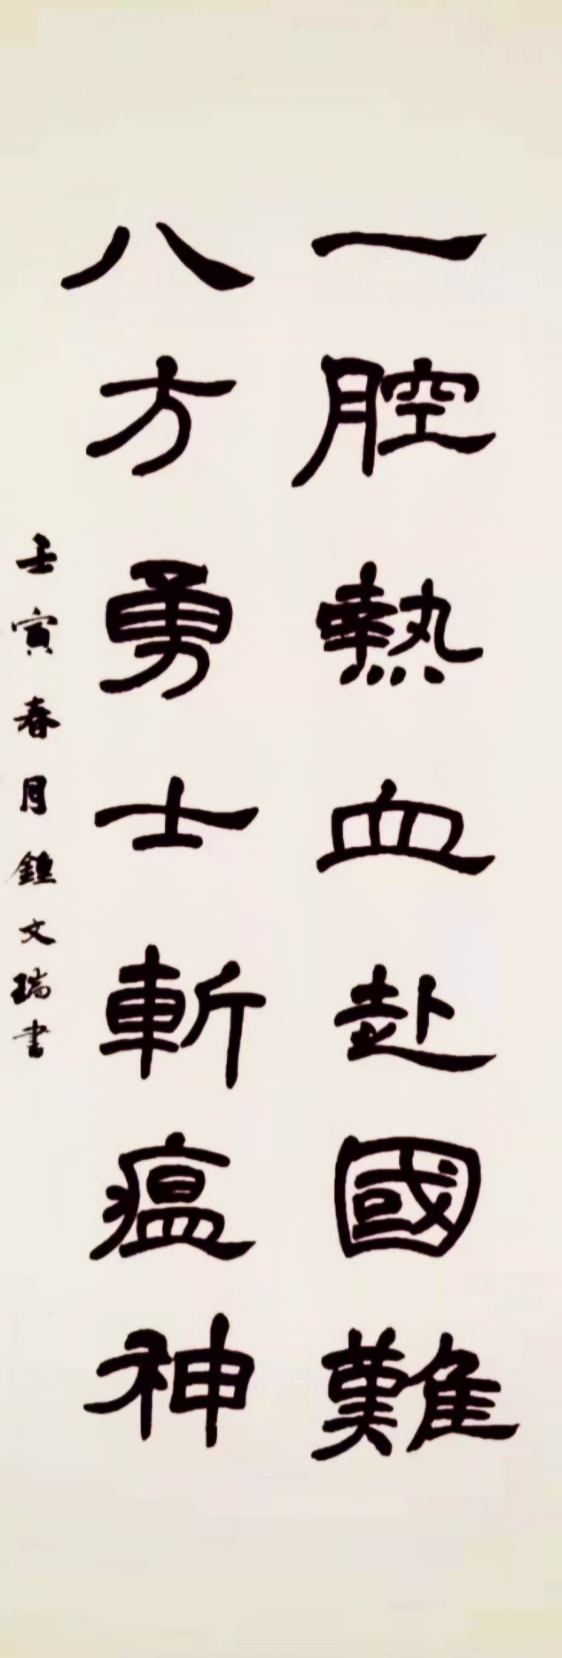 一腔熱血赴國難
八方勇士斬瘟神
壬寅春月鍾文瑞書